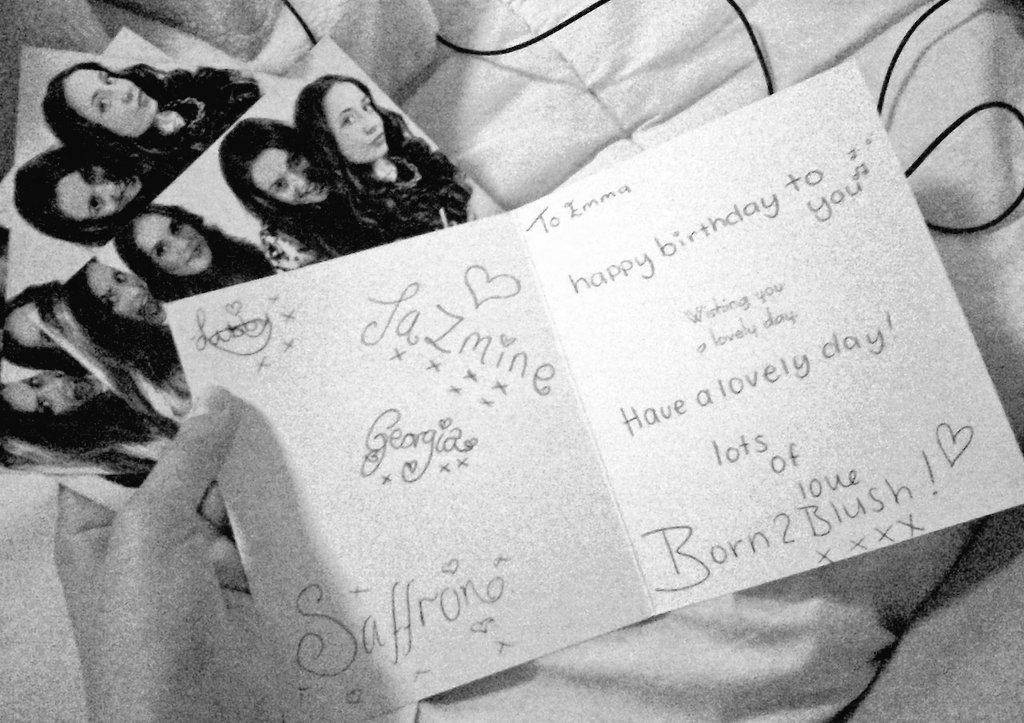 Jazmine
Georgia
Saffron
To Emma
happy birthday to
you
Wishing you
a lovely day
Have a lovely day!
lots
of
love
Born2Blush!
x x x x